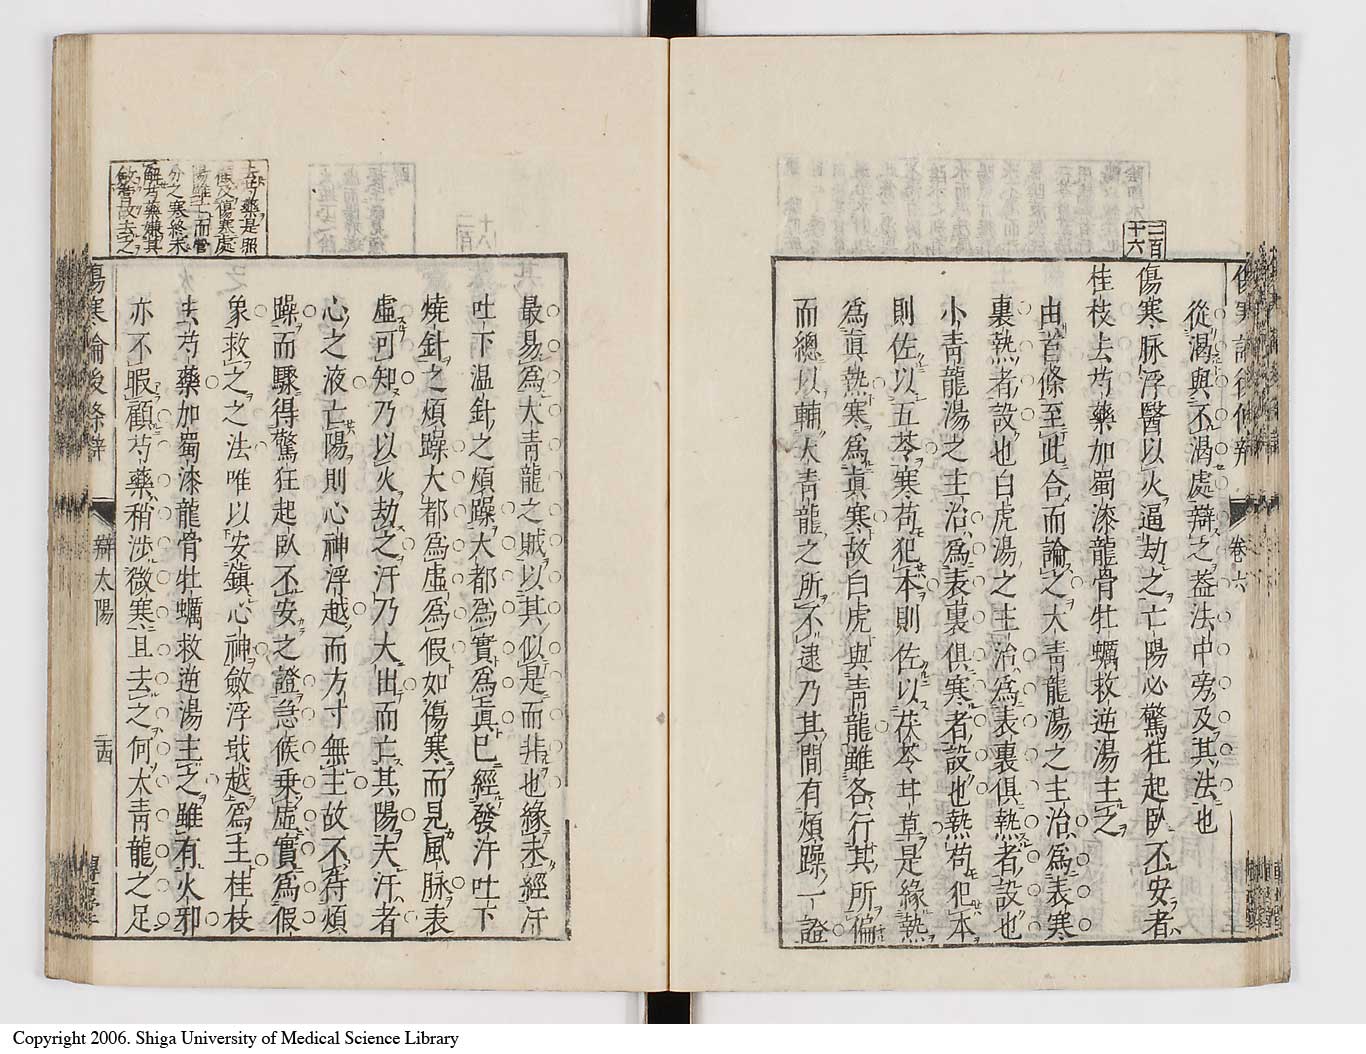 二百
十六
卷六
從渴與不渴處辯之蓋法中旁及其法也
傷寒脉浮醫以火逼劫之亡陽必驚狂起臥不安者
桂枝去芍藥加蜀漆龍骨牡蠣救逆湯主之
由首條至此合而論之大青龍湯之主治爲表寒
裏熱者設也白虎湯之主治爲表裏俱熱者設也
小青龍湯之主治爲表裏俱寒者設也熱苟犯本
則佐以五苓寒苟犯本則佐以茯苓甘草是緣熱
爲眞熱寒爲眞寒故白虎與青龍雖各行其所偏
而總以輔大青龍之所不逮乃其間有煩躁一證
最易爲大青龍之賊以其似是而非也緣未經汗
吐下温針之煩躁大都爲實爲眞已經發汗吐下
燒針之煩躁大都爲虛爲假如傷寒而見風脉表
虛可知乃以火劫之汗乃大出而亡其陽夫汗者
心之液亡陽則心神浮越而方寸無主故不特煩
躁而驟得驚狂起臥不安之證急候乗虛實爲假
象救之之法唯以安鎮心神斂浮戢越爲主桂枝
去芍藥加蜀漆龍骨牡蠣救逆湯主之雖有火邪
亦不暇顧芍藥稍涉微寒且去之何大青龍之足
去芍藥是邪
但及傷寒處
陽雖亡而營
分之寒終未
解芍藥嫌其
斂陰故去之
傷寒論後條辯
辯太陽
二四
Copyright 2006. Shiga University of Medical Science Library